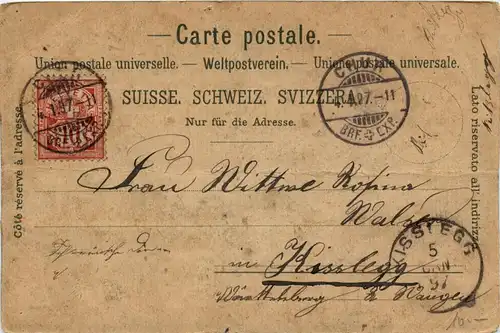 Carte postale.
Union postale universelle. — Weltpostverein. — Unione postale universale.
SUISSE. SCHWEIZ. SVIZZERA.
Nur für die Adresse.
Côté réservé à l'adresse.
Lato riservato all'indirizzo
CHUR
BRF. EXP.
Frau Wittwe Rosina
Walser
in Kisslegg
Württemberg
KISSLEGG
5
JAN
97